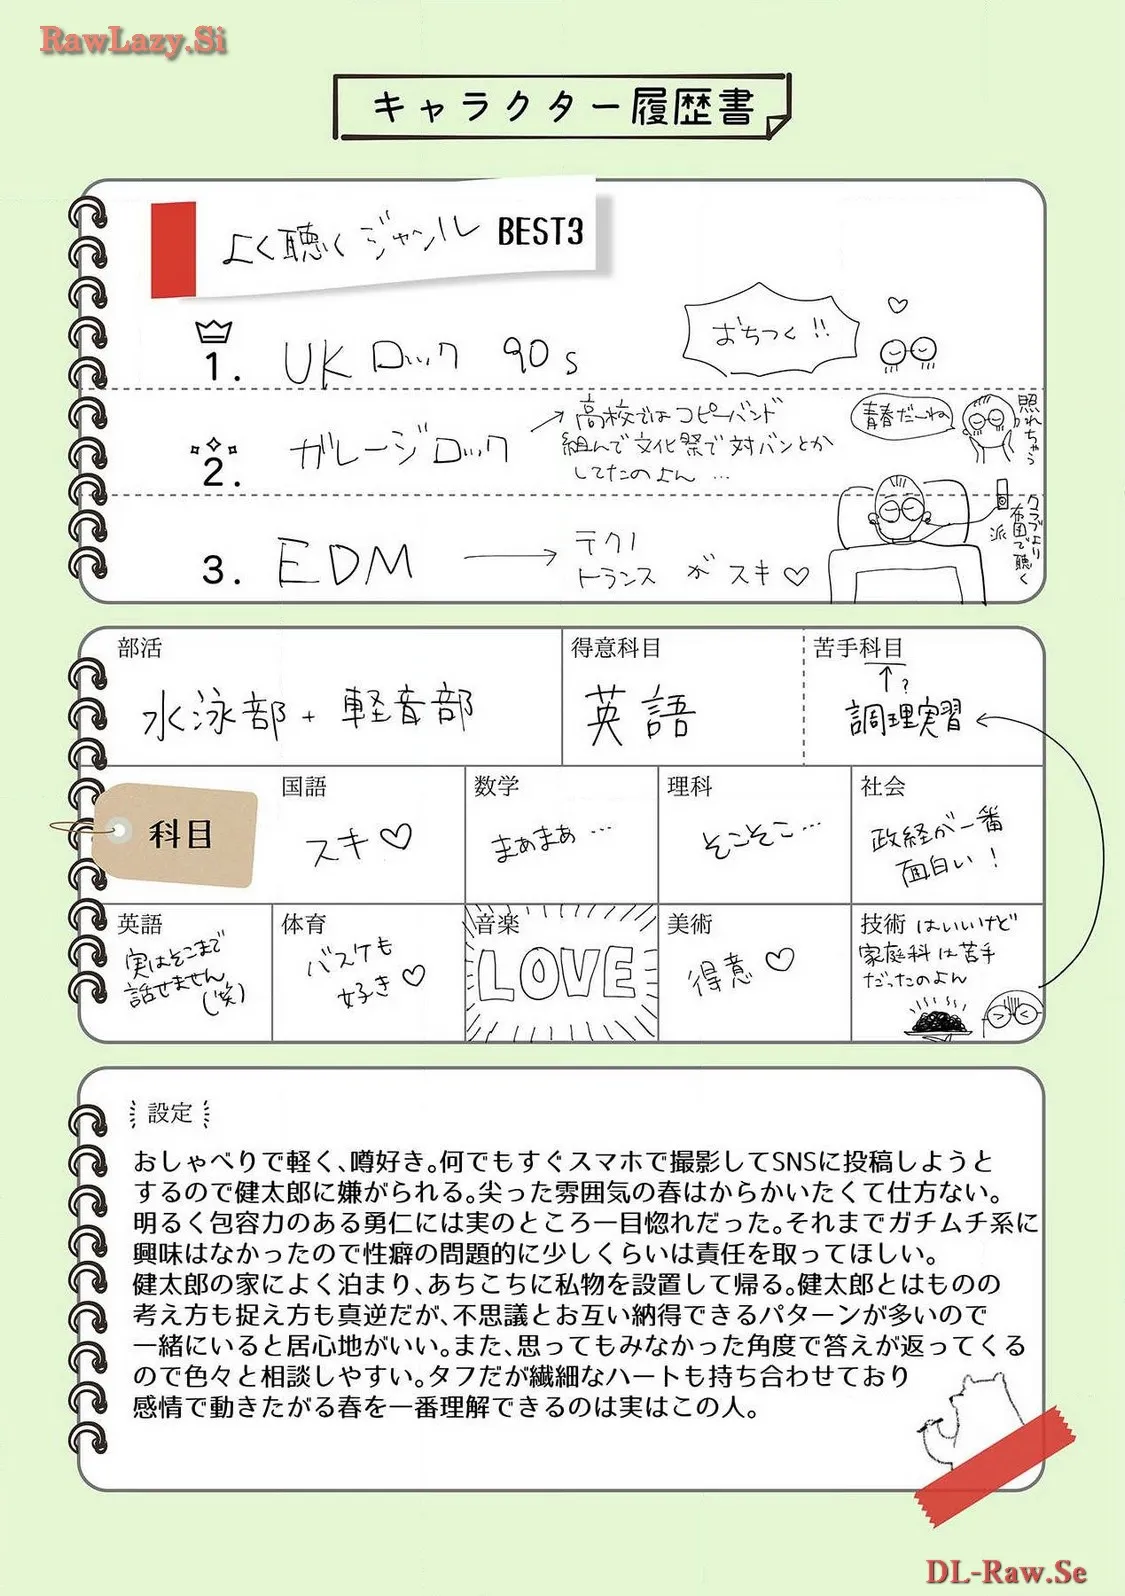 RawLazy.Si
キャラクター履歴書
よく聴くジャンル BEST3
1. UKロック 90s
おちつく!!
2. ガレージロック
高校ではコピーバンド
組んで文化祭で対バンとか
してたのよん…
青春だーね
照れちゃう
3. EDM
テクノ
トランス がスキ♡
クラブより
布団で聴く
派
部活
水泳部+軽音部
得意科目
英語
苦手科目
↑?
調理実習
科目
国語
スキ♡
数学
まぁまぁ…
理科
そこそこ…
社会
政経が一番
面白い!
英語
実はそこまで
話せません
(笑)
体育
バスケも
好き♡
音楽
LOVE
美術
得意♡
技術 はいいけど
家庭科は苦手
だったのよん
設定
おしゃべりで軽く、噂好き。何でもすぐスマホで撮影してSNSに投稿しようと
するので健太郎に嫌がられる。尖った雰囲気の春はからかいたくて仕方ない。
明るく包容力のある勇仁には実のところ一目惚れだった。それまでガチムチ系に
興味はなかったので性癖の問題的に少しくらいは責任を取ってほしい。
健太郎の家によく泊まり、あちこちに私物を設置して帰る。健太郎とはものの
考え方も捉え方も真逆だが、不思議とお互い納得できるパターンが多いので
一緒にいると居心地がいい。また、思ってもみなかった角度で答えが返ってくる
ので色々と相談しやすい。タフだが繊細なハートも持ち合わせており
感情で動きたがる春を一番理解できるのは実はこの人。
DL-Raw.Se